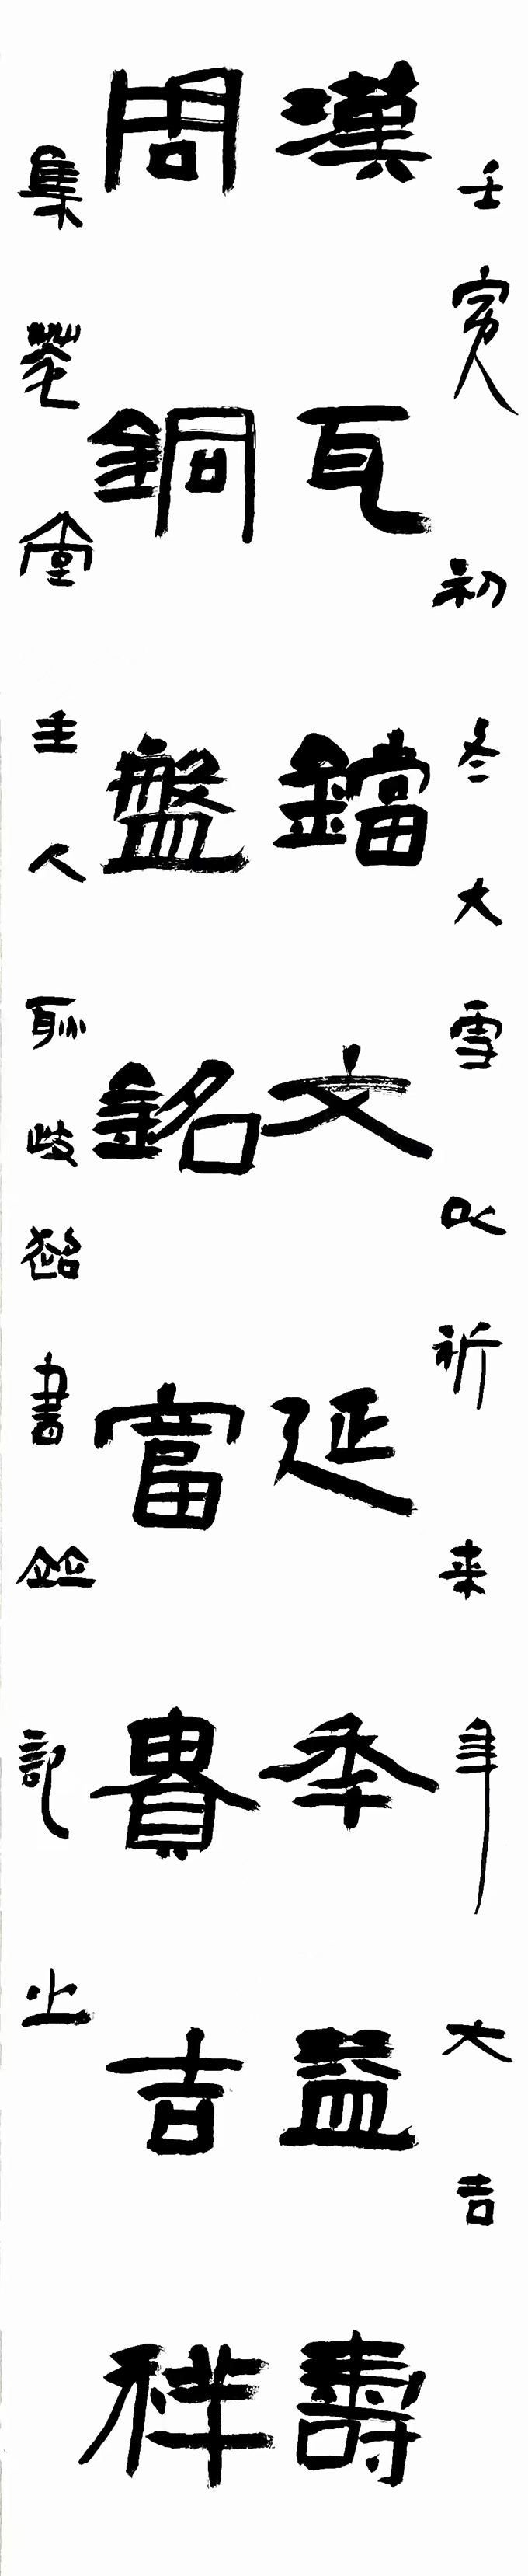 壬寅初冬大雪以祈来年大吉
漢瓦鐺文延年益壽
周銅盤銘富貴吉祥
集堂主人耶歧書並記止